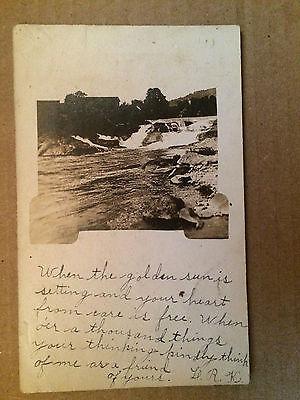 When the golden sun is
setting and your heart
from care is free. When
over a thousand things
your thinking kindly think
of me as a friend
of yours. L. R. K.